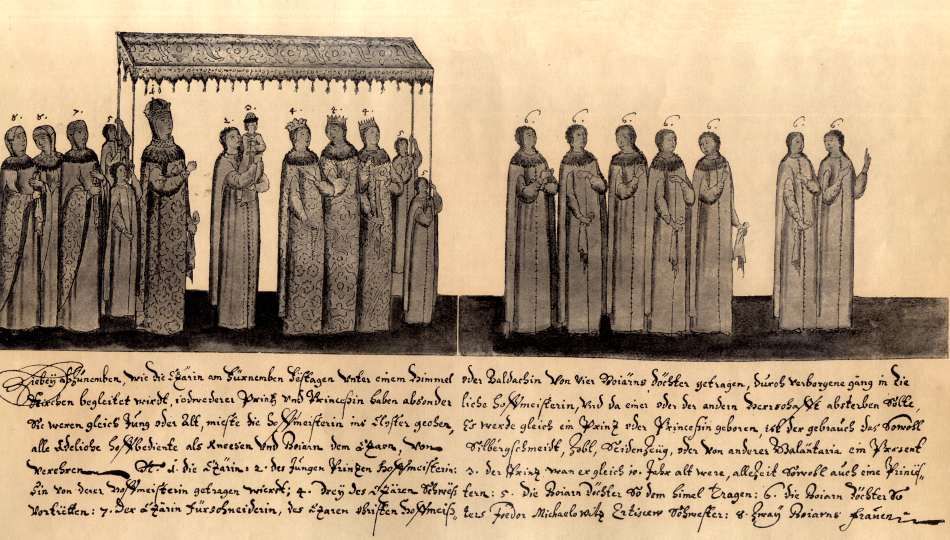 8. 8. 7. 5. 1. 2. 3. 4. 4. 4. 5. 5. 6. 6. 6. 6. 6. 6. 6.
Hiebeÿ abzunemben, wie die Czarin am fürnemben festagen unter einem Himmel oder Baldachin von vier Boiarns döchter getragen, durch verborgene gäng in die
Kirchen begleitet wirdt, iedweder Prinz und Princeßin haben absonderliche Hoffmeisterin, Und da einer oder der andern Herrschafft absterben solte,
Sie weren gleich Jung oder Alt, mieste die Hoffmeisterin ins Closter gehen, Es werde gleich ein Prinz oder Princeßin geboren, ist der gebrauch das sowoll
alle Edeliche Hoffbediente als Kneesen und Boiarn dem Czarn, von Silbergschmeidt, Zobl, Seidenzeüg, oder von anderer Galantaria ein Present
verehren 1. die Czarin: 2. des Jungen Prinzen Hoffmeisterin: 3. der Prinz wan er gleich 10. Jahr alt were, allezeit sowoll auch eine Princeß-
ßin von derer Hoffmeisterin getragen wierdt; 4. Dreÿ des Czaren Schwestern: 5. die Boiarn döchter so dem himel tragen: 6. die Boiarn döchter so
vortretten: 7. der Czarin fürschneiderin, des Czaren obristen Hoffmeisters Feodor Michaelowitz Ertischew Schwester: 8. Zwaÿ Boiarns frauen